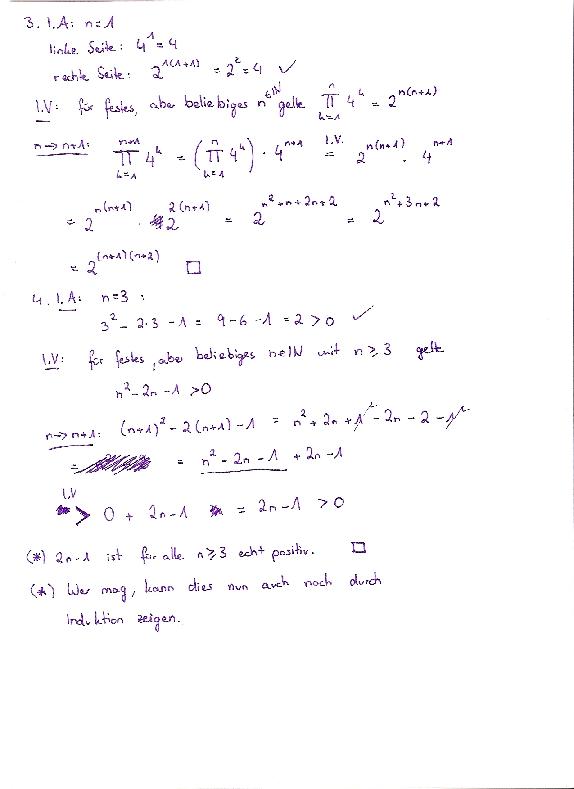 3. I.A: n=1
linke Seite: 4^1 = 4
rechte Seite: 2^{1(1+1)} = 2^2 = 4 ✓
I.V: für festes, aber beliebiges n ∈ ℕ gelte ∏_{k=1}^{n} 4^k = 2^{n(n+1)}
n→n+1: ∏_{k=1}^{n+1} 4^k = (∏_{k=1}^{n} 4^k) · 4^{n+1} I.V. = 2^{n(n+1)} · 4^{n+1}
= 2^{n(n+1)} · 2^{2(n+1)} = 2^{n^2+n+2n+2} = 2^{n^2+3n+2}
= 2^{(n+1)(n+2)} □
4. I.A: n=3 :
3^2 - 2·3 - 1 = 9 - 6 - 1 = 2 > 0 ✓
I.V: für festes, aber beliebiges n∈ℕ mit n ≥ 3 gelte
n^2 - 2n - 1 > 0
n→n+1: (n+1)^2 - 2(n+1) - 1 = n^2 + 2n + 1 - 2n - 2 - 1
= = n^2 - 2n - 1 + 2n - 1
I.V
> 0 + 2n - 1 = 2n - 1 > 0
(*) 2n-1 ist für alle n ≥ 3 echt positiv. □
(*) Wer mag, kann dies nun auch noch durch
Induktion zeigen.